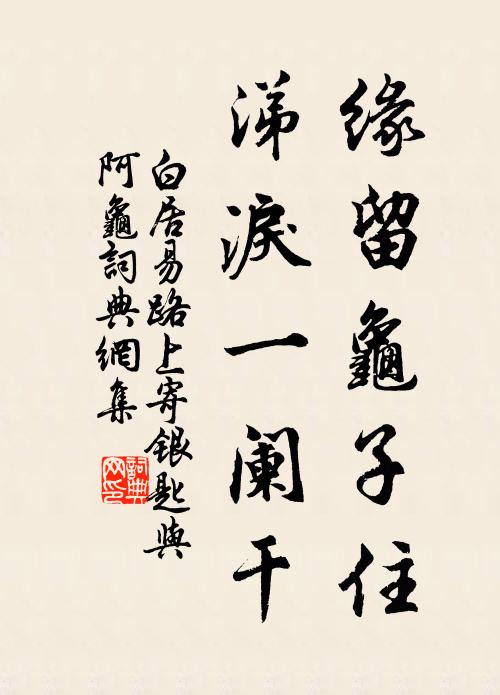 缘留龜子住
涕淚一阑干
白居易路上寄銀匙與
阿龜詞典網集
詞典
网印